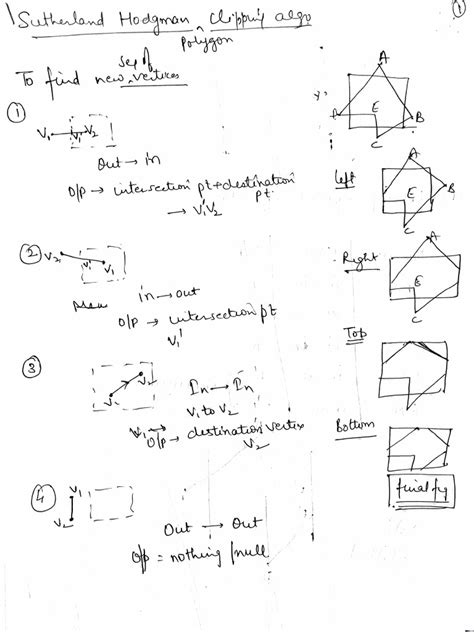 Sutherland Hodgman Clipping algo
Polygon
①
Set of
To find new vertices
①
V₁ V₁' V₂
Out → in
O/P → intersection pt + destination pt.
→ V₁'V₂
②
V₂ V₁' V₁
in → out
O/P → intersection pt
V₁'
③
V₁ V₂
In → In
V₁ to V₂
O/P → destination vertex
V₂
④
V₁
V₂
Out → Out
O/P = nothing/null
A
E
B
C
Left
A
E
B
C
Right
A
E
C
Top
Bottom
final fig